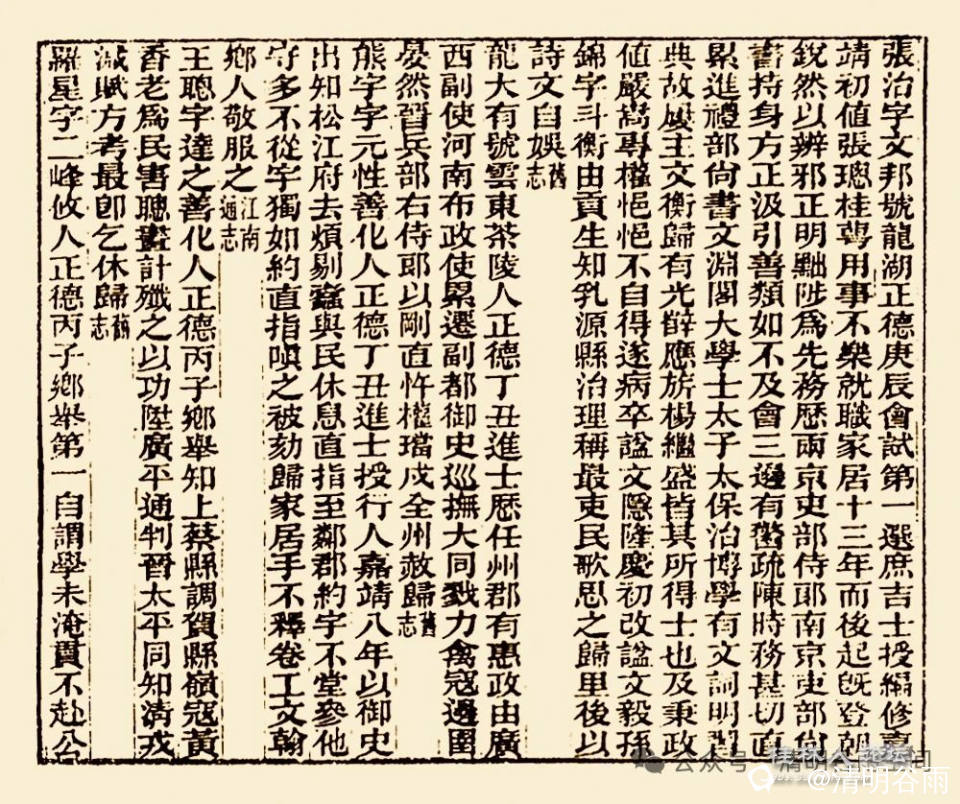 張治字文邦號龍湖正德庚辰會試第一選庶吉士授編修嘉
靖初值張璁桂萼用事不樂就職家居十三年而後起旣登朝
銳然以辨邪正明黜陟爲先務歷兩京吏部侍郎南京吏部尙
書持身方正汲引善類如不及會三邊有警疏陳時務甚切直
累進禮部尙書文淵閣大學士太子太保治博學有文詞明習
典故屢主文衡歸有光薛應旂楊繼盛皆其所得士也及秉政
値嚴嵩專權悒悒不自得遂病卒諡文隱隆慶初改諡文毅孫
錦字斗衡由貢生知乳源縣治理稱最吏民歌思之歸里後以
詩文自娛舊志
龍大有號雲東茶陵人正德丁丑進士歷任州郡有惠政由廣
西副使河南布政使累遷副都御史巡撫大同戮力禽寇邊圉
晏然晉兵部右侍郎以剛直忤權璫戍全州赦歸舊志
熊宇字元性善化人正德丁丑進士授行人嘉靖八年以御史
出知松江府去煩剔蠧與民休息直指至鄰郡約宇不堂參他
守多不從宇獨如約直指嗔之被劾歸家居手不釋卷工文翰
鄉人敬服之江南通志
王聰字達之善化人正德丙子鄉舉知上蔡縣調賀縣嶺寇黃
香老爲民害聰畫計殲之以功陞廣平通判晉太平同知淸戎
減賦方考最卽乞休歸舊志
羅星字二峰攸人正德丙子鄉舉第一自謂學未淹貫不赴公
公众号 清明谷雨空间
@清明谷雨